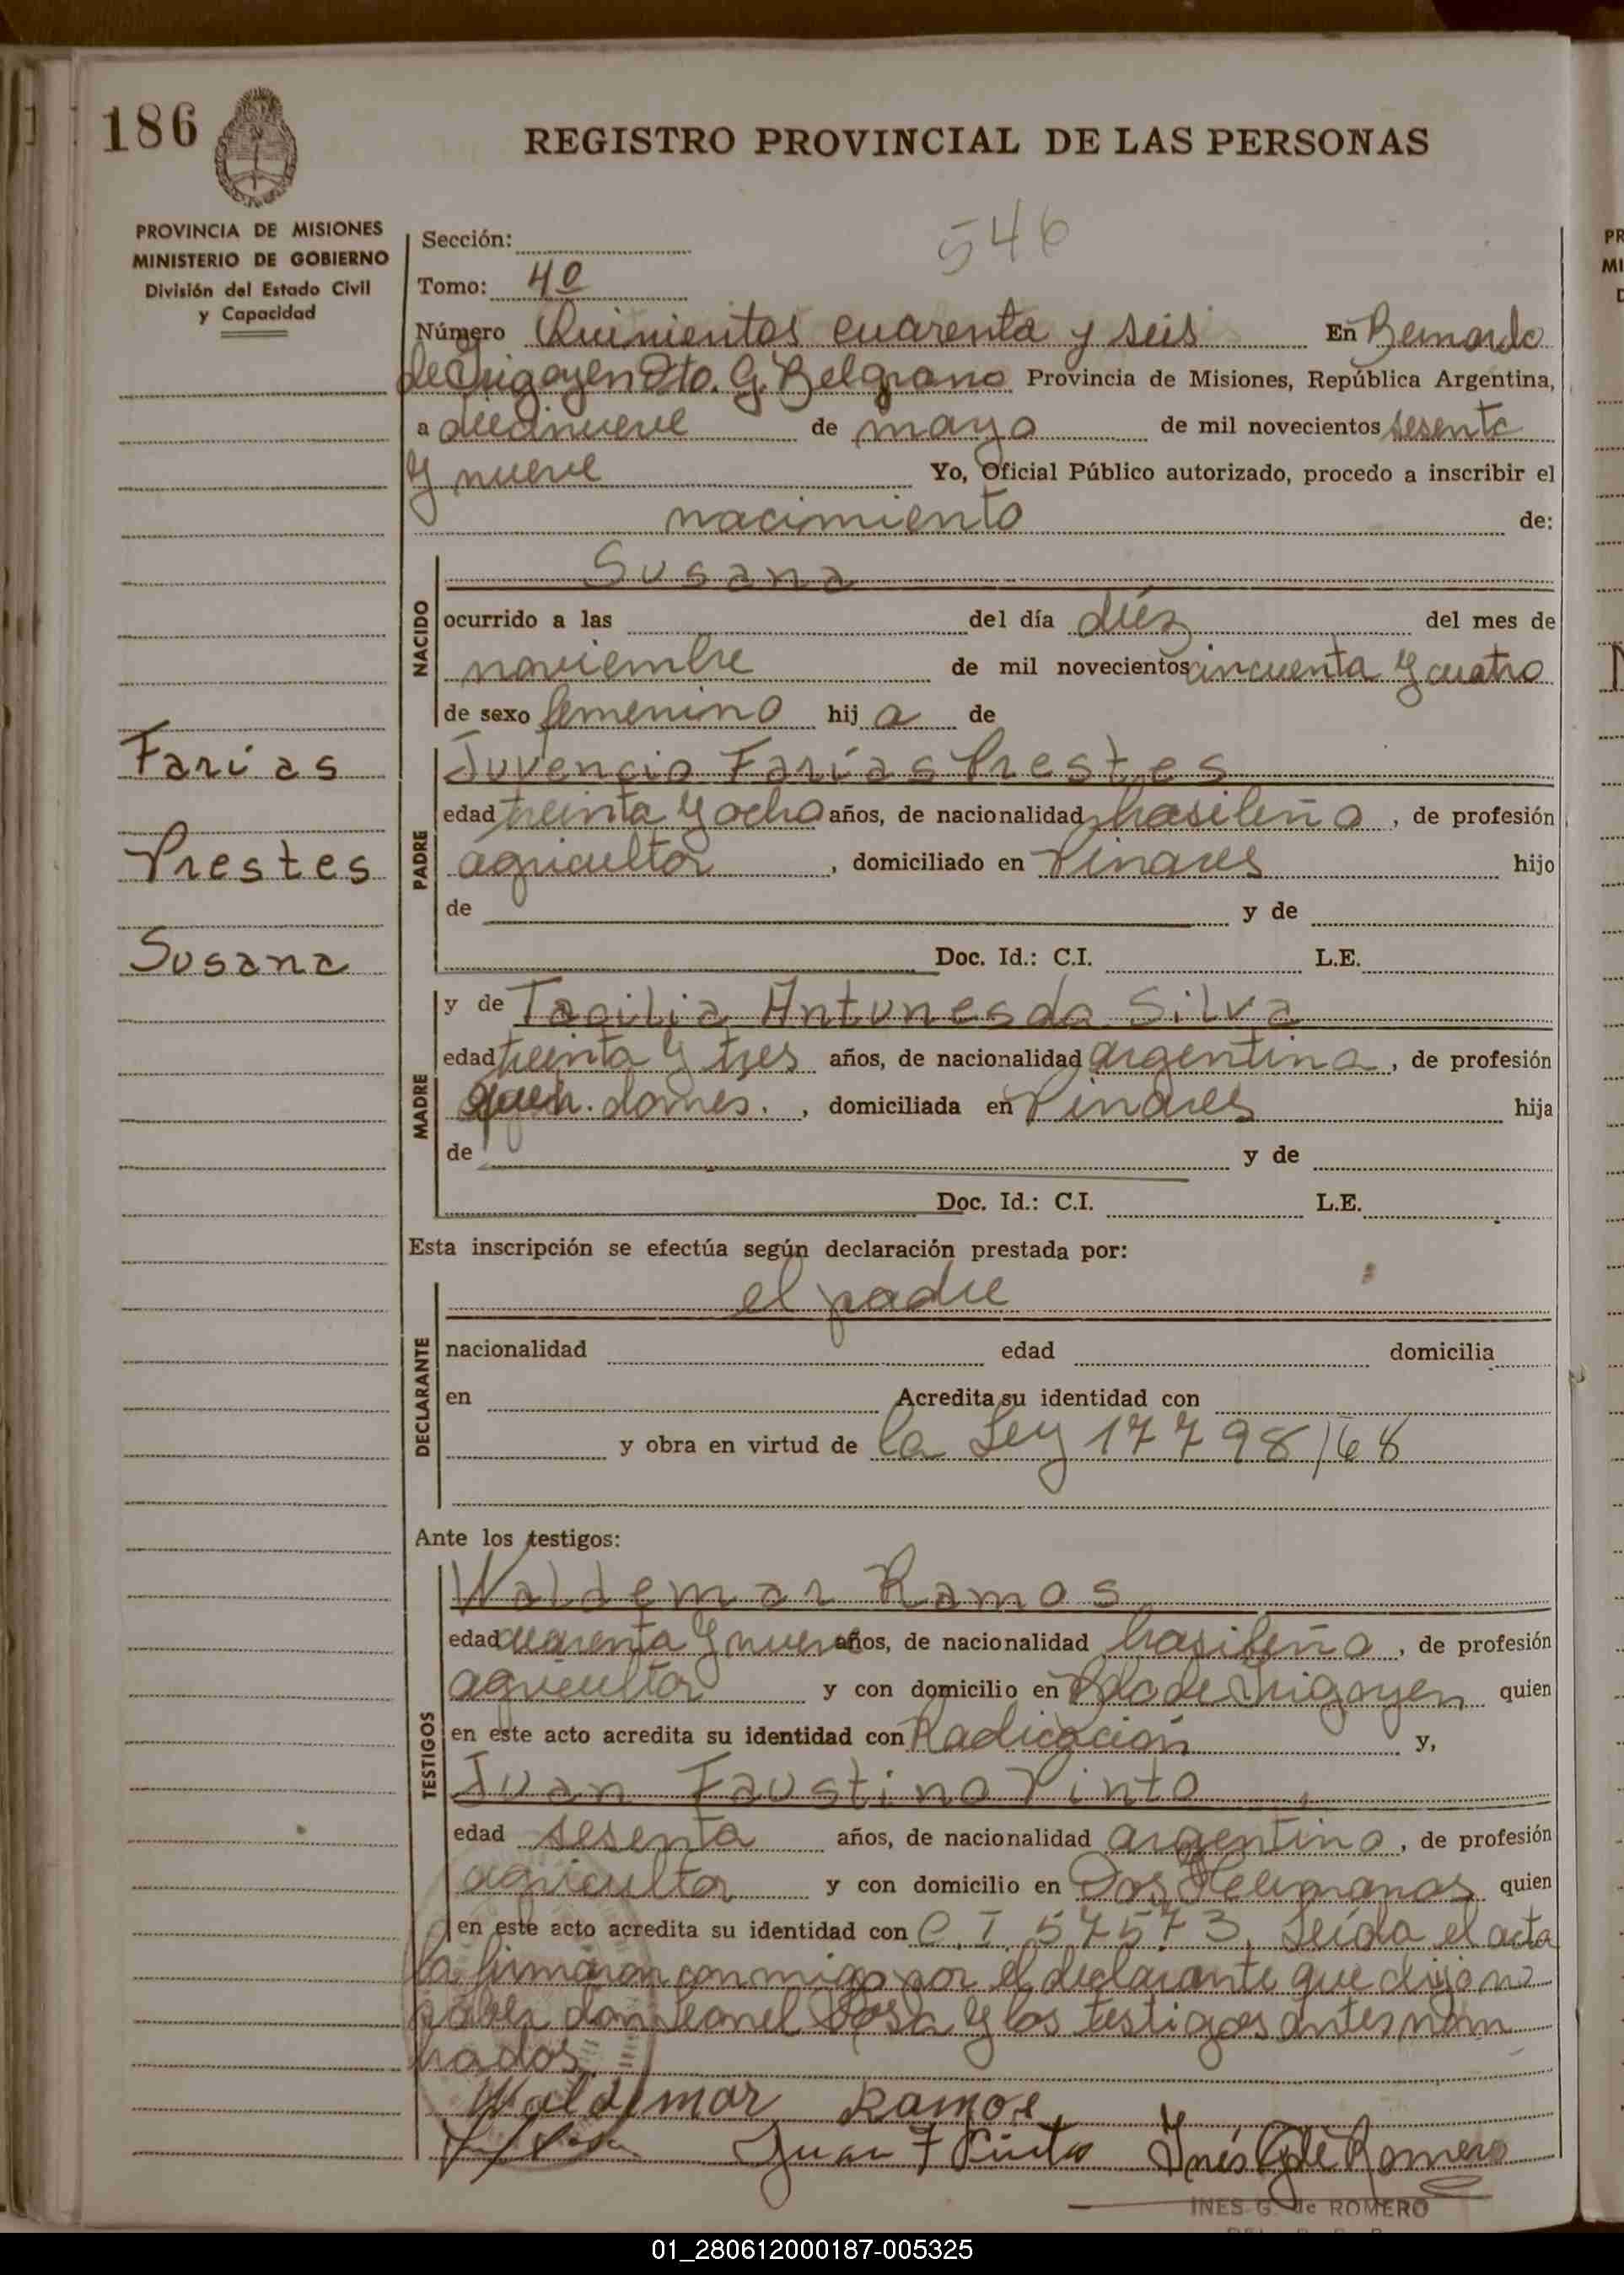 186
REGISTRO PROVINCIAL DE LAS PERSONAS
PROVINCIA DE MISIONES
MINISTERIO DE GOBIERNO
División del Estado Civil
y Capacidad
546
Sección:
Tomo: 4º
Número Quinientos cuarenta y seis En Bernardo
de Irigoyen Dto. G. Belgrano Provincia de Misiones, República Argentina,
a diecinueve de mayo de mil novecientos sesenta
y nueve Yo, Oficial Público autorizado, procedo a inscribir el
nacimiento de:
NACIDO
Susana
ocurrido a las del día diez del mes de
noviembre de mil novecientos cincuenta y cuatro
de sexo femenino hij a de
Farías
Prestes
Susana
PADRE
Juvencio Farías Prestes
edad treinta y ocho años, de nacionalidad brasileña, de profesión
agricultor, domiciliado en Pinares hijo
de y de
Doc. Id.: C.I. L.E.
MADRE
y de Tacilia Antunes da Silva
edad treinta y tres años, de nacionalidad argentina, de profesión
queh. domes., domiciliada en Pinares hija
de y de
Doc. Id.: C.I. L.E.
Esta inscripción se efectúa según declaración prestada por:
DECLARANTE
el padre
nacionalidad edad domicilia
en Acredita su identidad con
y obra en virtud de la Ley 17798/68
Ante los testigos:
TESTIGOS
Waldemar Ramos
edad cuarenta y nueve años, de nacionalidad brasileña, de profesión
agricultor y con domicilio en Bdo de Irigoyen quien
en este acto acredita su identidad con Radicación y,
Juan Faustino Pinto
edad sesenta años, de nacionalidad argentina, de profesión
agricultor y con domicilio en Dos Hermanas quien
en este acto acredita su identidad con C.I 57573. Leída el acta
la firmaron conmigo por el declarante que dijo no
saber don Leonel Sosa y los testigos antes nom
brados
Waldemar Ramos
Juan F Pinto Inés G de Romero
INES G. de ROMERO
01_280612000187-005325